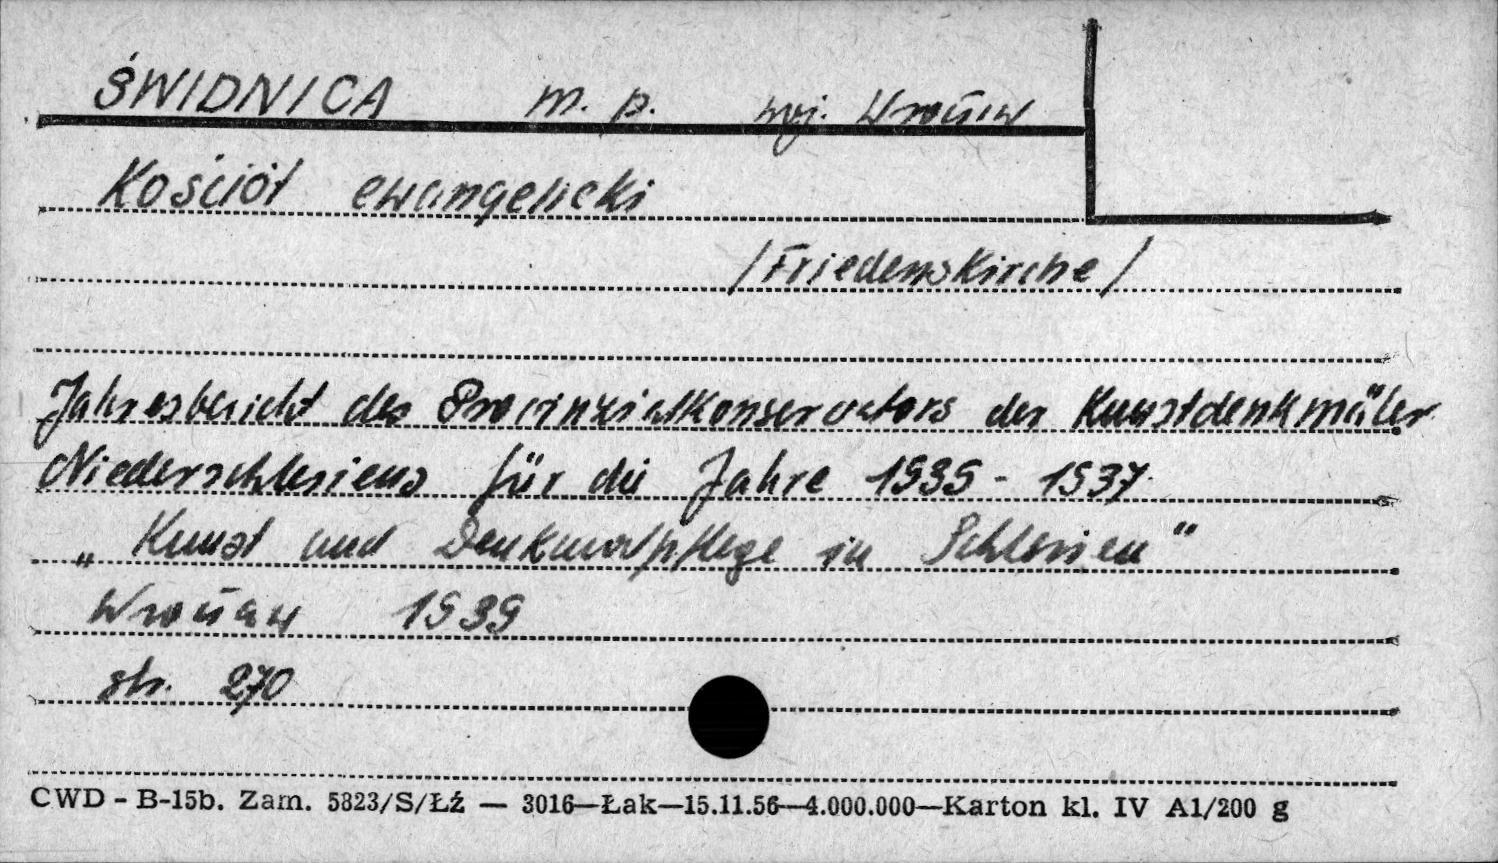 ŚWIDNICA m. p. woj. Wrocław
Kościół ewangelicki
/Friedenskirche/
Jahresbericht des Provinzialkonservators der Kunstdenkmäler
Niederschlesiens für die Jahre 1935 - 1937.
„Kunst und Denkmalpflege in Schlesien"
Wrocław 1939
str. 270
CWD - B-15b. Zam. 5823/S/Łź — 3016—Łak—15.11.56—4.000.000—Karton kl. IV A1/200 g